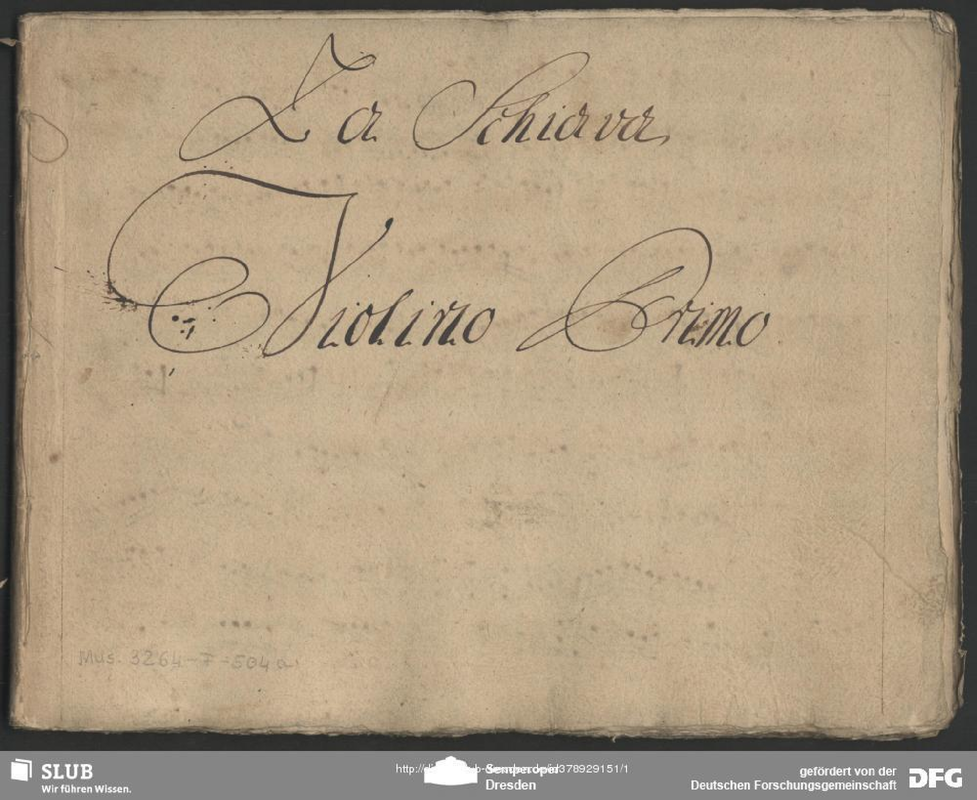 La Schiava
Violino Primo
Mus. 3264-F-504a
SLUB
Wir führen Wissen.
Semperoper
Dresden
gefördert von der
Deutschen Forschungsgemeinschaft
DFG